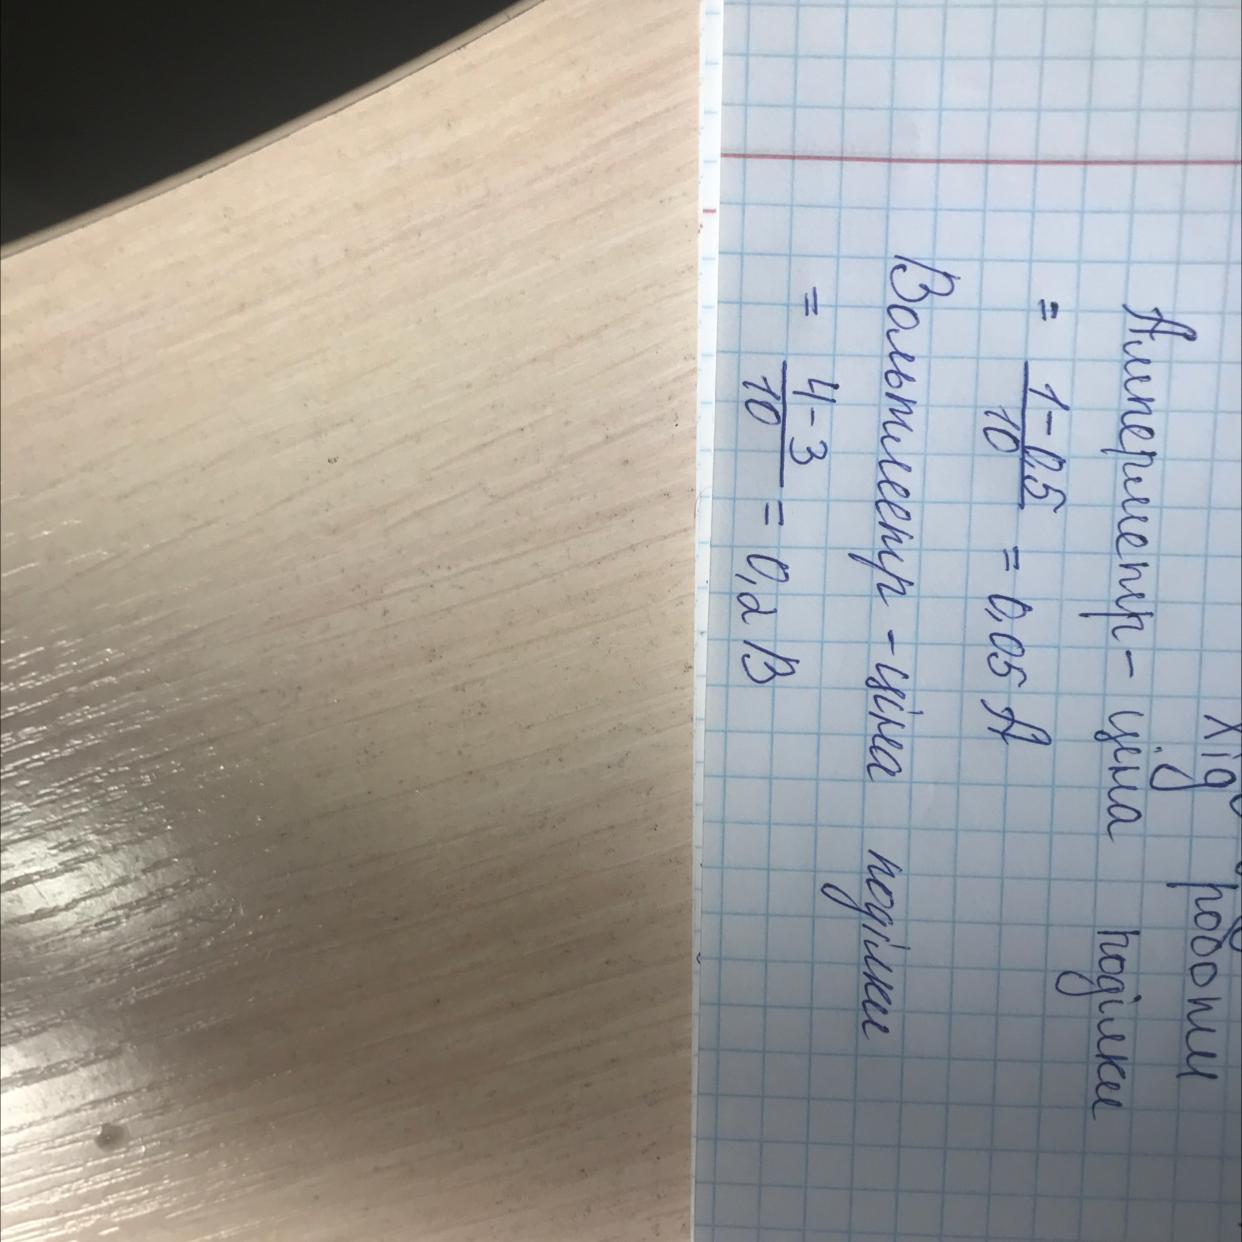 Хід роботи
Амперметр - ціна поділки
= 1-0,5 / 10 = 0,05 А
Вольтметр - ціна поділки
= 4-3 / 10 = 0,2 В